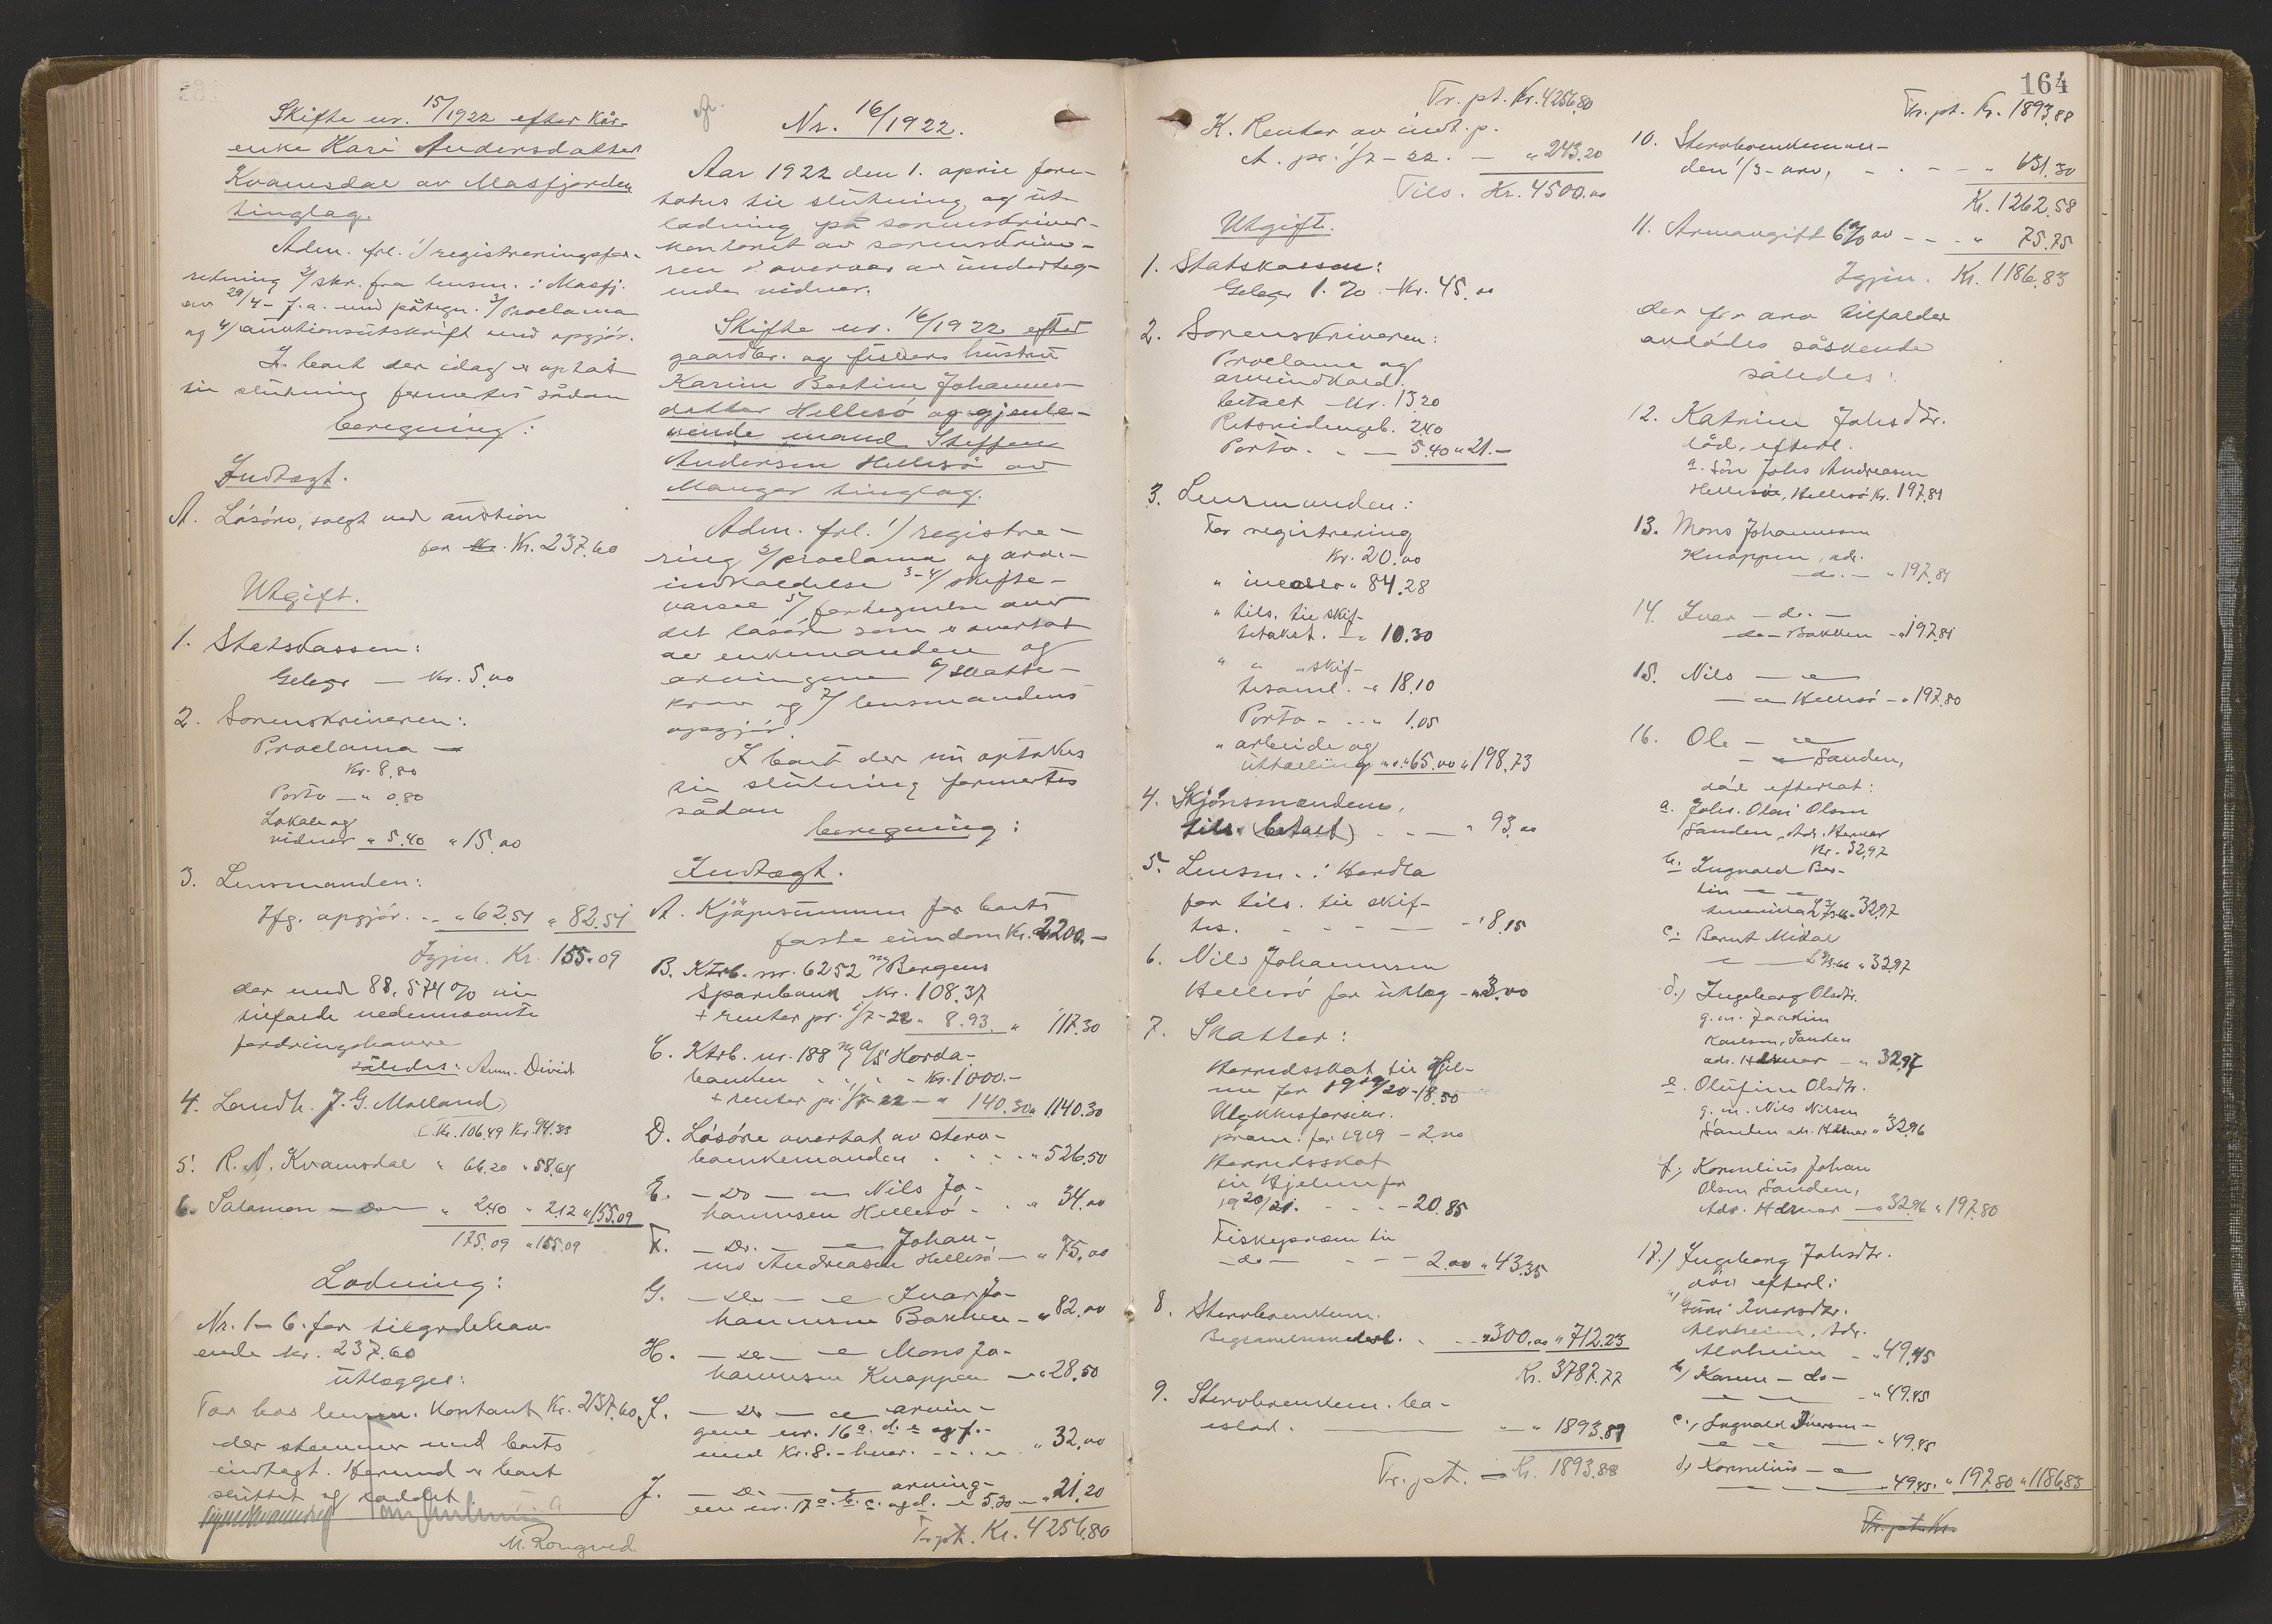 Skifte nr. 15/1922 efter kår-
enke Kari Andersdatter
Kvamsdal av Masfjorden
tinglag.
Adm. frl. 1/ registreringsfor-
retning 2/ skr. fra lensm. i Masfj.
av 29/4 - f.a. med påtegn. 3/ Proclama
og 4/ auktionsutskrift med opgjör.
I boet der idag er optat
til slutning formertes sådan
beregning:
Indtægt.
A. Lösöre, solgt ved auktion
for Kr. Kr. 237.60
Utgift.
1. Statskassen:
Gebyr — Kr. 5.00
2. Sorenskriveren:
Proclama —
Kr. 8.80
Porto — " 0.80
Lokale og
vidner " 5.40 " 15.00
3. Lensmanden:
Ifg. opgjör. — " 62.51 " 82.51
Igjen. Kr. 155.09
der med 88,574 % vil
tilfalde nedennævnte
fordringshavere
således: Anm. Divid.
4. Landh. J. G. Molland,
Kr. 106.49 Kr. 94.33
5. R. N. Kvamsdal " 66.20 " 58.64
6. Salamon — do — " 2.40 " 2.12 " 155.09
175.09 " 155.09
Lodning:
Nr. 1 - 6. for tilgodehav-
ende Kr. 237.60
utlægges:
Tar hos lensm. Kontant Kr. 237.60
der stemmer med boets
indtægt. Hermed er boet
sluttet og loddet.
M. Rongved.
Nr. 16/1922.
Aar 1922 den 1. april fore-
toges til slutning og ut-
lodning på sorenskriver-
kontoret av sorenskrive-
ren i overvær av underteg-
nede vidner.
Skifte nr. 16/1922 efter
gaardbr. og fiskers hustru
Karim Bertine Johannes-
datter Hellesö og gjenle-
vende mand Steffen
Andersen Hellesö av
Manger tinglag.
Adm. frl. 1/ registre-
ring 2/ proclama og arve-
indkaldelse 3-4/ skifte-
varsel 5/ fortegnelse over
det lösöre som er overtat
av enkemanden og
arvingene 6/ skatte-
krav og 7/ lensmandens
opgjör.
I boet der nu optokes
til slutning formertes
sådan
beregning:
Indtægt.
A. Kjöpesummen for boets
faste eiendom Kr. 2200.—
B. Ktrb. nr. 6252 m/ Bergens
Sparebank Kr. 108.37
+ renter pr. 1/7-22 " 8.93 " 117.30
C. Ktrb. nr. 188 m/ A/S Horda-
banken . . . Kr. 1000.—
+ renter pr. 1/7-22 — " 140.30 " 1140.30
D. Lösöre overtat av sterv-
boenkemanden . . . . " 526.50
E. — do — — Nils Jo-
hannesen Hellesö . . " 34.00
F. — do. — — Johan-
nes Andreasen Hellesö — " 75.00
G. — do — — Ivar Jo-
hannesen Bakken — " 82.00
H. — do — — Mons Jo-
hannesen Knappen — " 28.50
I. — do — — arvin-
gene nr. 16 a. d. e og f.
med Kr. 8.— hver. . . . " 32.00
J. — do. — — arving-
en nr. 17 a. b. c. og d. — 5.30 — " 21.20
Trpt. Kr. 4256.80
164
Tr. pt. Kr. 4256.80
K. Renter av indt. p.
A. pr. 1/7 - 22. — " 243.20
Tils. Kr. 4500.00
Utgift.
1. Statskassen:
Gebyr 1 % - Kr. 45.00
2. Sorenskriveren:
Proclama og
arveindkald.
betalt Kr. 13.20
Retsvidnegeb. 2.40
Porto . . — 5.40 " 21.—
3. Lensmanden:
For registrering
Kr. 20.00
" incasso " 84.28
" tils. til skif-
tetakst. — " 10.30
" " " skif-
tesaml. — " 18.10
Porto — . . " 1.05
" arbeide og
uttælling " " 65.00 " 198.73
4. Skjönsmændene,
tils. (betalt) . . — " 93.00
5. Lensm. i Herdla
for tils. til skif-
tes. . . . . — " 8.15
6. Nils Johannesen
Hellesö for utlæg — " 3.00
7. Skatter:
Herredsskat til Hjel-
me for 1919/20 - 18.50
Ulykkesforsikr.
præm. for 1919 — 2.00
Herredsskat
til Hjelme for
1920/21. . . . - 20.85
Fiskepræm til
— do — . — — 2.00 " 43.35
8. Stervboenkem.
Begravelsesutl. . . — " 300.00 " 712.23
Kr. 3787.77
9. Stervboenkem. bo-
eslod. — — " 1893.89
Tr. pt. — Kr. 1893.88
Tr. pt. Kr. 1893.88
10. Stervboenkeman-
den 1/3 - arv, . . — — " 631.30
Kr. 1262.58
11. Arveavgift 6 % av — — . " 75.75
Igjen. Kr. 1186.83
der for arv tilfalder
avdödes söskende
således:
12. Katrine Johsdtr.
död, efterl.
a. Sön Johs Andreasen
Hellesöe, Hellesö Kr. 197.81
13. Mons Johannesen
Knappen, adr.
— do. — " 197.81
14. Ivar — do. —
— do — Bakken — " 197.81
15. Nils — —
— — Hellesö — " 197.80
16. Ole — —
— — Sanden,
död efterlat:
a. Johs. Olai Olsen
Sanden, Adr. Hernar
Kr. 32.97
b. Ingvald Ber-
tin — —
" 32.97
c. Bernt Mikal
— — " 32.97
d.) Ingeborg Olsdtr.
g. m. Joakim
Karlsen, Sanden
adr. Hernar — " 32.97
e. Olufine Olsdtr.
g. m. Nils Nilsen
Sanden adr. Hernar " 32.96
f.) Kornelius Johan
Olsen Sanden,
Adr. Hernar — " 32.96 " 197.80
17.) Ingeborg Johsdtr.
död efterl:
a) Guri Iversdtr.
Alvheim, Adr.
Alvheim — " 49.45
b) Karen — do —
— — — " 49.45
c.) Ingvald Iversen —
— — — " 49.45
d) Kornelius — —
— — — " 49.45. " 197.80 " 1186.83
Tr. pt. Kr.